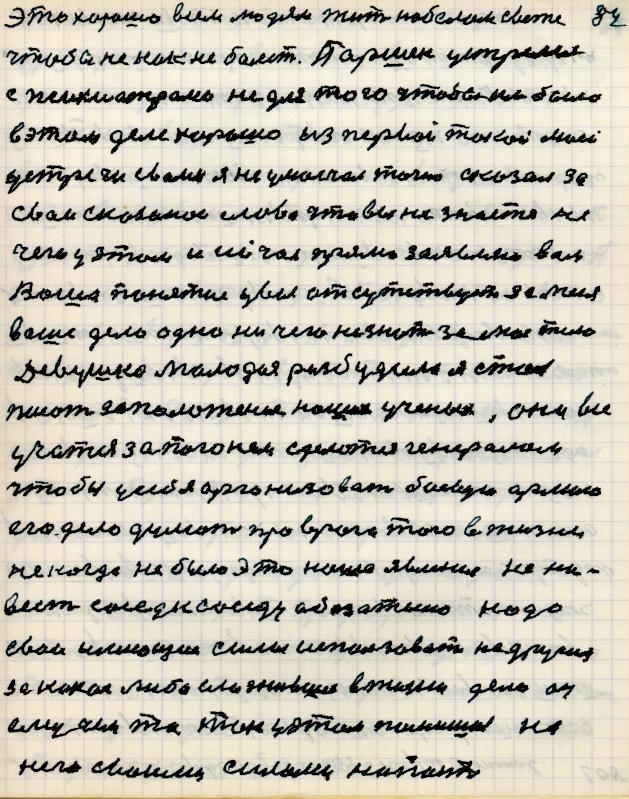 Это хорошо всем людям жить на белом свете 84
чтобы не как не болет. Паршек устремил
с психиатрами не для того чтобы не было
в этом деле хорошо из первой такой моей
устречи свами я не умолчал точно сказал за
сваи сказаное слово что вы не знаете не
чего у этом и сичас прямо заявляю вам
Ваша понятие увы отсутствует за меня
ваше дело одно ни чего не знат за мое тело
Девушка молодая разбудила я стал
писат за положения наших ученых, они все
учатся за погонем сделатся генералом
чтобы усебя организоват боевую армию
его дело думат про врага того в жизни
не когда не было это наша явления не на-
вест соседи соседу абезателно надо
сваи имеющие силы исползоват на других
за какое либо сложившие в жизни дело он
ему чем та так у этом помешал на
него сваими силами напаст